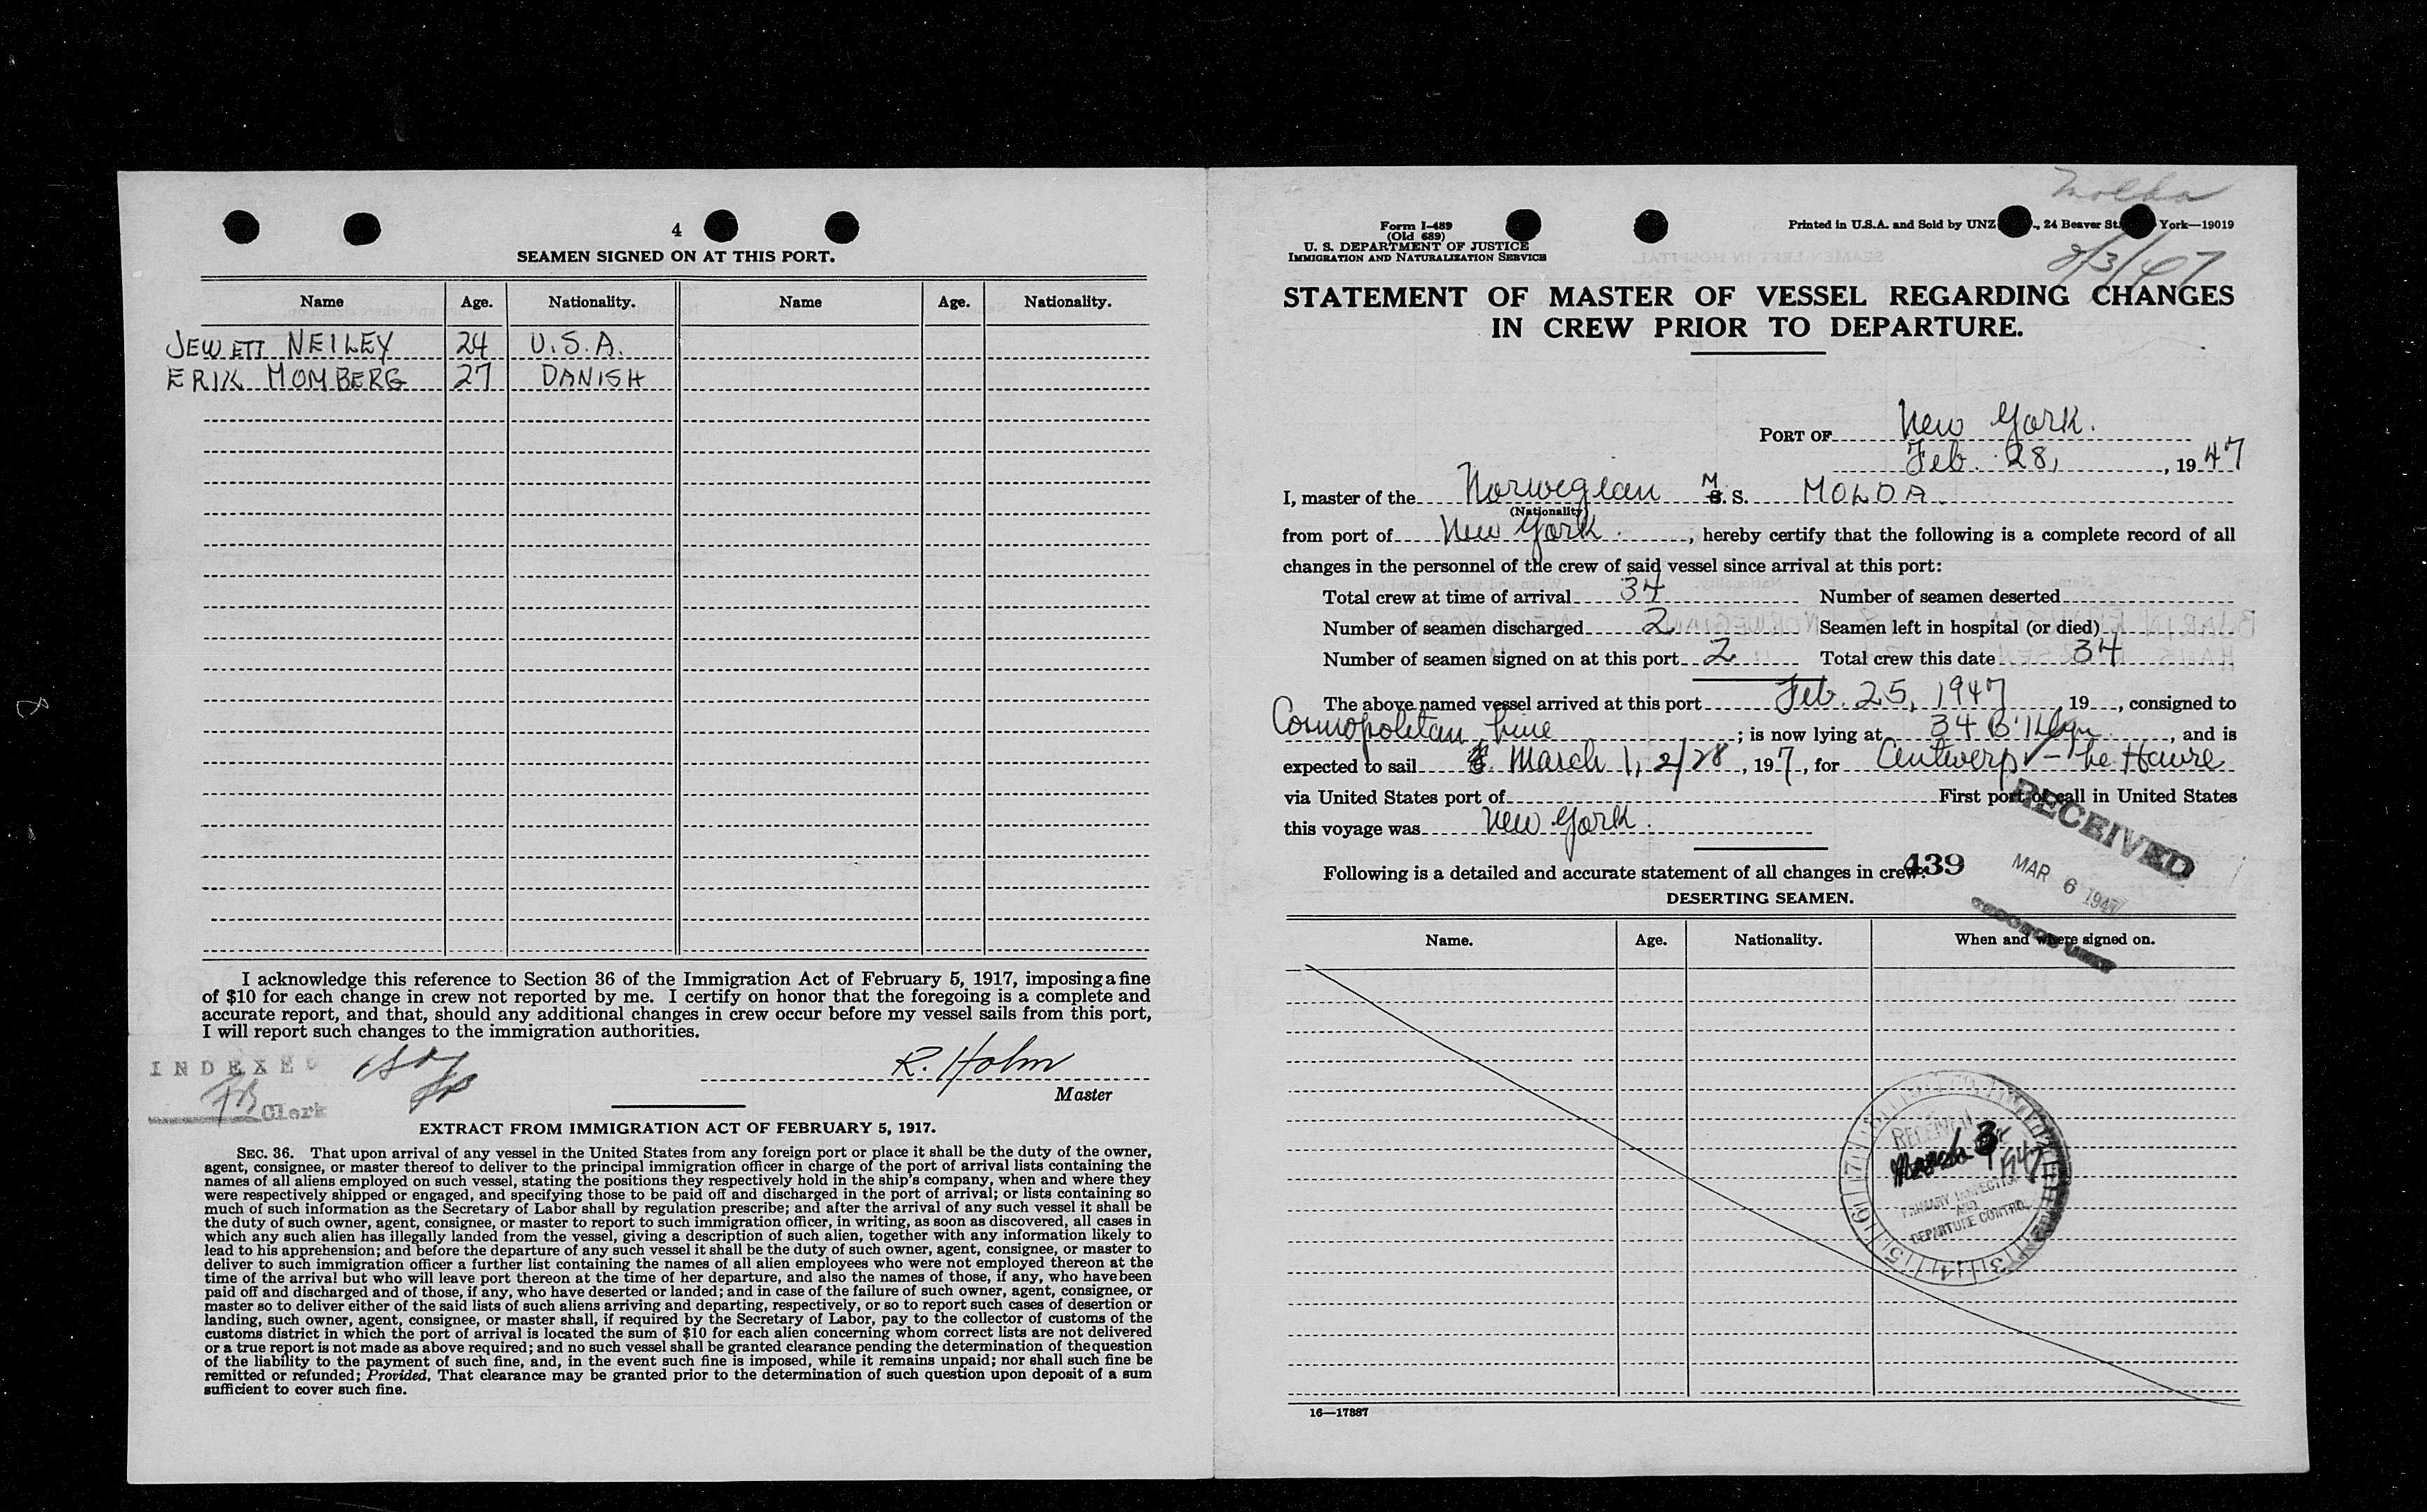 4
SEAMEN SIGNED ON AT THIS PORT.
Name Age. Nationality. Name Age. Nationality.
JEWETT NEILEY 24 U.S.A.
ERIK MOMBERG 27 DANISH
I acknowledge this reference to Section 36 of the Immigration Act of February 5, 1917, imposing a fine
of $10 for each change in crew not reported by me. I certify on honor that the foregoing is a complete and
accurate report, and that, should any additional changes in crew occur before my vessel sails from this port,
I will report such changes to the immigration authorities.
INDEXED
Clerk
R. Holm
Master
EXTRACT FROM IMMIGRATION ACT OF FEBRUARY 5, 1917.
SEC. 36. That upon arrival of any vessel in the United States from any foreign port or place it shall be the duty of the owner,
agent, consignee, or master thereof to deliver to the principal immigration officer in charge of the port of arrival lists containing the
names of all aliens employed on such vessel, stating the positions they respectively hold in the ship's company, when and where they
were respectively shipped or engaged, and specifying those to be paid off and discharged in the port of arrival; or lists containing so
much of such information as the Secretary of Labor shall by regulation prescribe; and after the arrival of any such vessel it shall be
the duty of such owner, agent, consignee, or master to report to such immigration officer, in writing, as soon as discovered, all cases in
which any such alien has illegally landed from the vessel, giving a description of such alien, together with any information likely to
lead to his apprehension; and before the departure of any such vessel it shall be the duty of such owner, agent, consignee, or master to
deliver to such immigration officer a further list containing the names of all alien employees who were not employed thereon at the
time of the arrival but who will leave port thereon at the time of her departure, and also the names of those, if any, who have been
paid off and discharged and of those, if any, who have deserted or landed; and in case of the failure of such owner, agent, consignee, or
master so to deliver either of the said lists of such aliens arriving and departing, respectively, or so to report such cases of desertion or
landing, such owner, agent, consignee, or master shall, if required by the Secretary of Labor, pay to the collector of customs of the
customs district in which the port of arrival is located the sum of $10 for each alien concerning whom correct lists are not delivered
or a true report is not made as above required; and no such vessel shall be granted clearance pending the determination of the question
of the liability to the payment of such fine, and, in the event such fine is imposed, while it remains unpaid; nor shall such fine be
remitted or refunded; Provided, That clearance may be granted prior to the determination of such question upon deposit of a sum
sufficient to cover such fine.
Form I-489
(Old 689)
U. S. DEPARTMENT OF JUSTICE
IMMIGRATION AND NATURALIZATION SERVICE
Printed in U.S.A. and Sold by UNZ ., 24 Beaver St. York—19019
/3/47
STATEMENT OF MASTER OF VESSEL REGARDING CHANGES
IN CREW PRIOR TO DEPARTURE.
PORT OF New York.
Feb. 28, , 1947
I, master of the Norwegian M.S. MOLDA
(Nationality)
from port of New York. , hereby certify that the following is a complete record of all
changes in the personnel of the crew of said vessel since arrival at this port:
Total crew at time of arrival 34 Number of seamen deserted
Number of seamen discharged 2 Seamen left in hospital (or died)
Number of seamen signed on at this port 2 Total crew this date 34
The above named vessel arrived at this port Feb. 25, 1947 19 , consigned to
Cosmopolitan Line ; is now lying at 34 B'klyn , and is
expected to sail March 1, 2/28 , 197 , for Antwerp – Le Havre
via United States port of First port of call in United States
this voyage was New York.
Following is a detailed and accurate statement of all changes in crew:
439
RECEIVED
MAR 6 1947
DESERTING SEAMEN.
Name. Age. Nationality. When and where signed on.
RECEIVED
March 3 1947
PRIMARY INSPECTION
AND
DEPARTURE CONTROL
16—17887